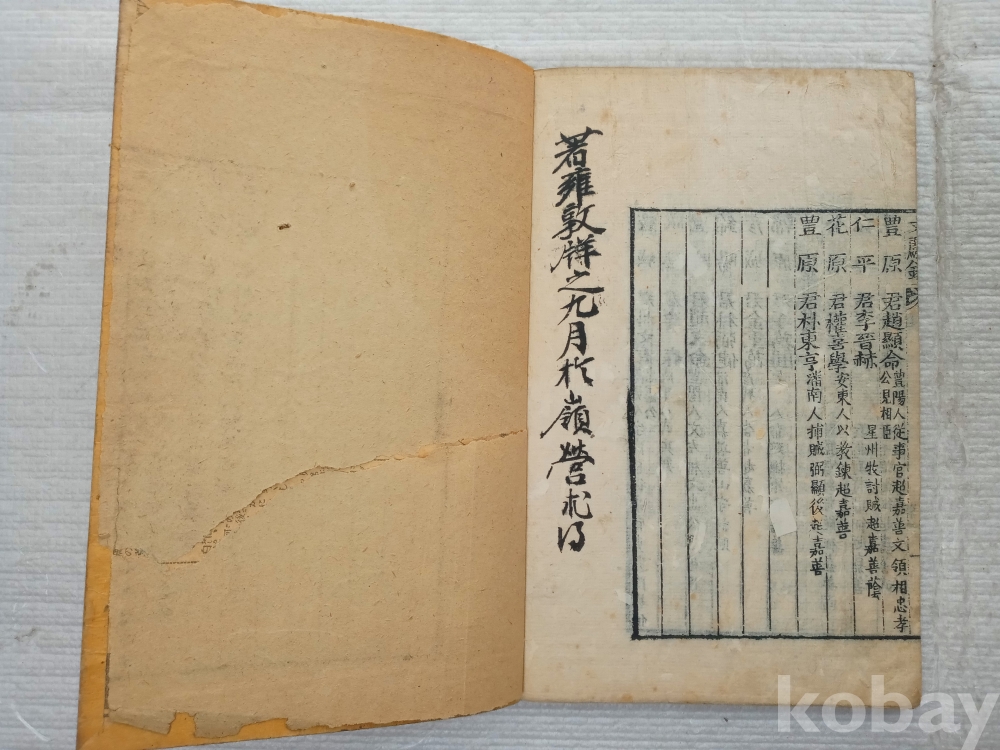 豊原君趙顯命 豊陽人從事官超嘉善文領相忠孝
公見相臣
仁平君李晉赫 星州牧討賊超嘉善蔭
花原君權喜學 安東人以教鍊超嘉善
豊原君朴東亨 潘南人捕賊弼顯後超嘉善
著雍敦牂之九月於嶺營得
kobay